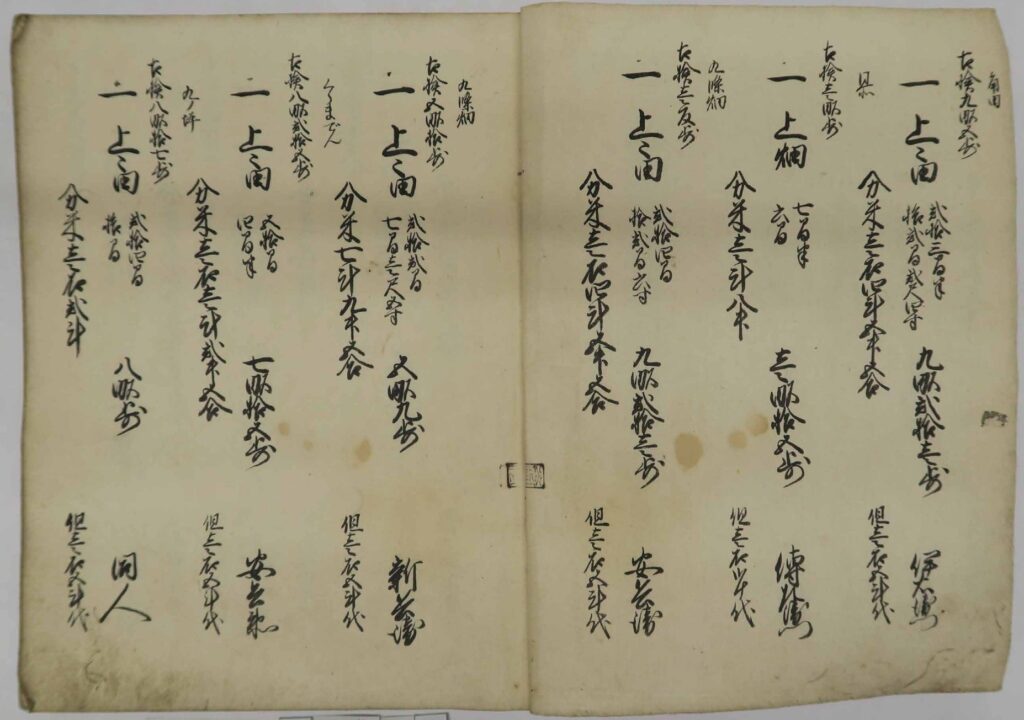 角田
古拾九畝五歩
一 上々田 弐拾三間半 拾弐間弐尺四寸 九畝弐拾壱歩 伊右衛門
分米壱石四斗五升五合 但壱石五斗代
古拾壱畝歩
一 上畑 七間半 六間 壱畝拾五歩
分米壱斗八升 但壱石弐斗代
九條畑
古拾壱 歩
一 上々田 弐拾四間 拾弐間六寸 九畝弐拾壱歩 安兵衛
分米壱石四斗五升五合 但壱石五斗代
九條畑
古拾五畝拾歩
一 上々田 弐拾弐間 七間壱尺五寸 五畝九歩 新兵衛
分米七斗九升五合 但壱石五斗代
くまでん
古拾八畝弐拾五歩
一 上々田 五拾間 四間半 七畝拾五歩 安兵衛
分米壱石壱斗弐升五合 但壱石五斗代
九ノ坪
古拾八畝拾七歩
一 上々田 弐拾四間 拾間 八畝歩 同人
分米壱石弐斗 但壱石五斗代